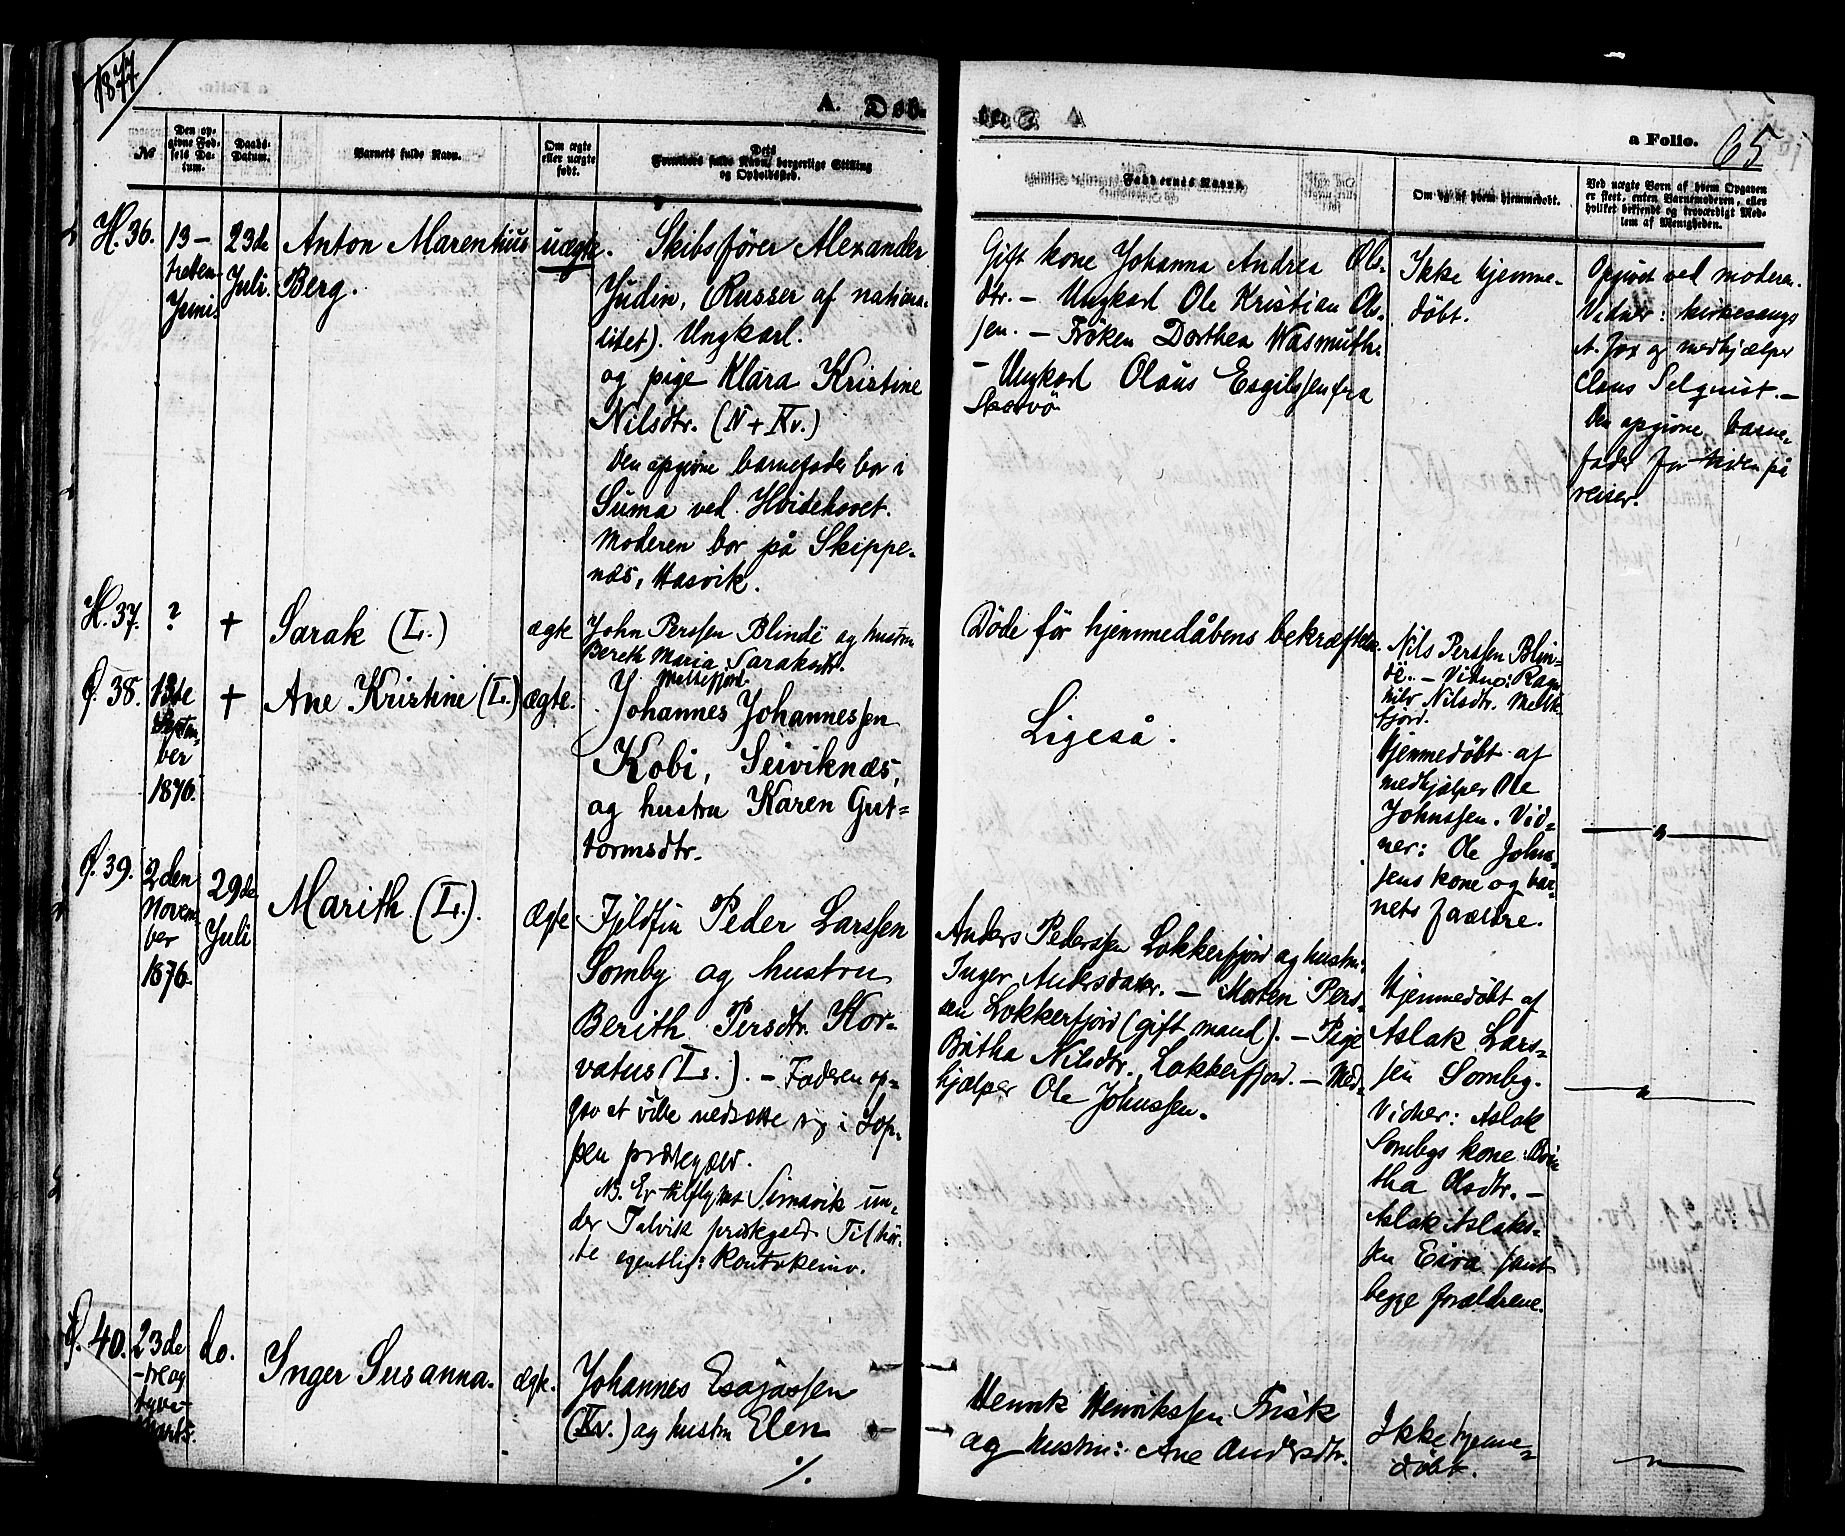 1877.
A. Døb-
te.
a Folio. 65
No
Den op-
givne Fød-
sels Da-
tum.
Daabs-
Datum.
Barnets fulde Navn.
Om ægte
eller uægte
født.
Dets
Forældres fulde Navn, borgerlige Stilling
og Opholdssted.
Faddernes Navne.
Om og af hvem hjemmedøbt.
Ved uægte Børn af hvem Opgaven
er skeet, enten Barnemoderen, eller
hvilket bekjendt og troværdigt Med-
lem af Menigheden.
H. 36.
13-
tretten
Juni.
23de
Juli.
Anton Marentius
Berg.
uægte.
Skibsfører Alexander
Judin, (Russer af nationa-
litet). Ungkarl.
og pige Klara Kristine
Nilsdtr. (N + Kv.)
Den opgivne barnefader bor i
Suma ved Hvidehavet.
Moderen bor på Skippe-
næs, Hasvik.
Gift kone Johanna Andrea Ols-
dtr. – Ungkarl Ole Kristian Ols-
sen. – Frøken Dorthea Wasmuth.
– Ungkarl Olaus Esgilssen fra
Skorvö
Ikke hjemme-
døbt.
Opgivet ved moderen.
Vidner: kirkesangr
A. Fox og medhjælper
Claus Selqvist. –
Den opgivne barne-
fader for tiden på
reiser.
H. 37.
?
+
Sarak (L.)
ægte
John Perssen Blindö og hustru
Bereth Maria Saraksdtr.
Meltefjord
Døde før hjemmedåbens bekræftelse.
Nils Perssen Blin-
dö. – Vidne: Ragn
hild Nilsdtr. Melk-
fjord.
Ø. 38.
13de
Septem-
ber
1876.
+
Ane Kristine (L.)
ægte.
Johannes Johannessen
Kobi, Seiviknæs,
og hustru Karen Gut-
tormsdtr.
Ligeså.
Hjemmedøbt af
medhjælper Ole
Johnssen. Vid-
ner: Ole Johns-
sens kone og bar-
nets forældre.
– " –
Ø. 39.
2den
Novem-
ber
1876.
29de
Juli
Marith (L.).
Ægte
Fjeldfin Peder Larssen
Somby og hustru
Berith Persdtr. Kor-
vatus (L.). – Faderen op-
gav at ville nedsætte sig i Lop-
pen præstegjeld.
NB. Er tilflyttet Simavik un-
der Talvik præstegjeld. Tilhør-
te egentlig: Koutokeino.
Anders Pederssen Lokkerfjord og hustru:
Inger Andersdatter. – Morten Pers-
sen Lokkerfjord (gift mand). – Pige
Britha Nilsdtr. Lokkerfjord. – Med-
hjælper Ole Johnssen.
Hjemmedøbt af
Aslak Lars-
sen Somby.
Vidner: Aslak
Sombys kone: Bri-
tha Olsdtr. –
Aslak Aslaks-
sen Eira samt
begge forældrene.
– " –
Ø. 40.
23de
– tre og
tyve –
Marts.
do.
Inger Susanna.
ægte.
Johannes Esajassen
(Kv.) og hustru Elen
./.
Henrik Henrikssen Frisk
og hustru: Ane Andersdtr.
Ikke hjemme-
døbt.
– " –